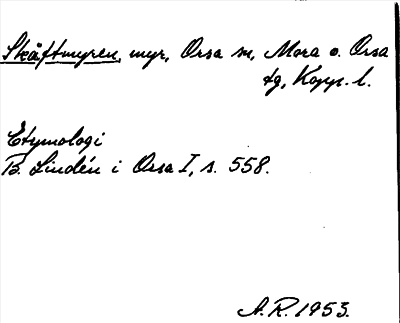 Skäftmyren, myr, Orsa sn, Mora o. Orsa
tg, Kopp. l.
Etymologi
B. Lindén i Orsa I, s. 558.
A. R. 1953.